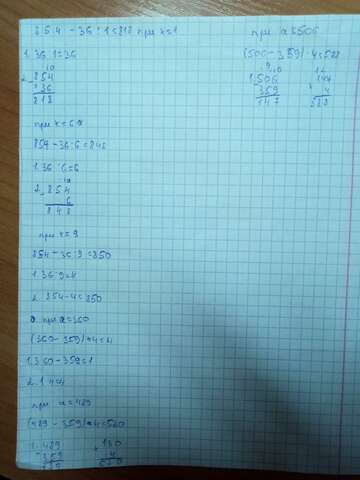 854 - 36 : 1 = 818 при x=1
1. 36 : 1 = 36
2. 854
- 36
818
при x = 6
854 - 36 : 6 = 848
1. 36 : 6 = 6
2. 854
- 6
848
при x = 9
854 - 36 : 9 = 850
1. 36 : 9 = 4
2. 854 - 4 = 850
при a = 360
(360 - 359) · 4 = 4
1. 360 - 359 = 1
2. 1 · 4 = 4
при a = 489
(489 - 359) · 4 = 520
1. 489
- 359
130
4
при a = 506
(506 - 359) · 4 = 588
1. 506
- 359
147
147
4
588